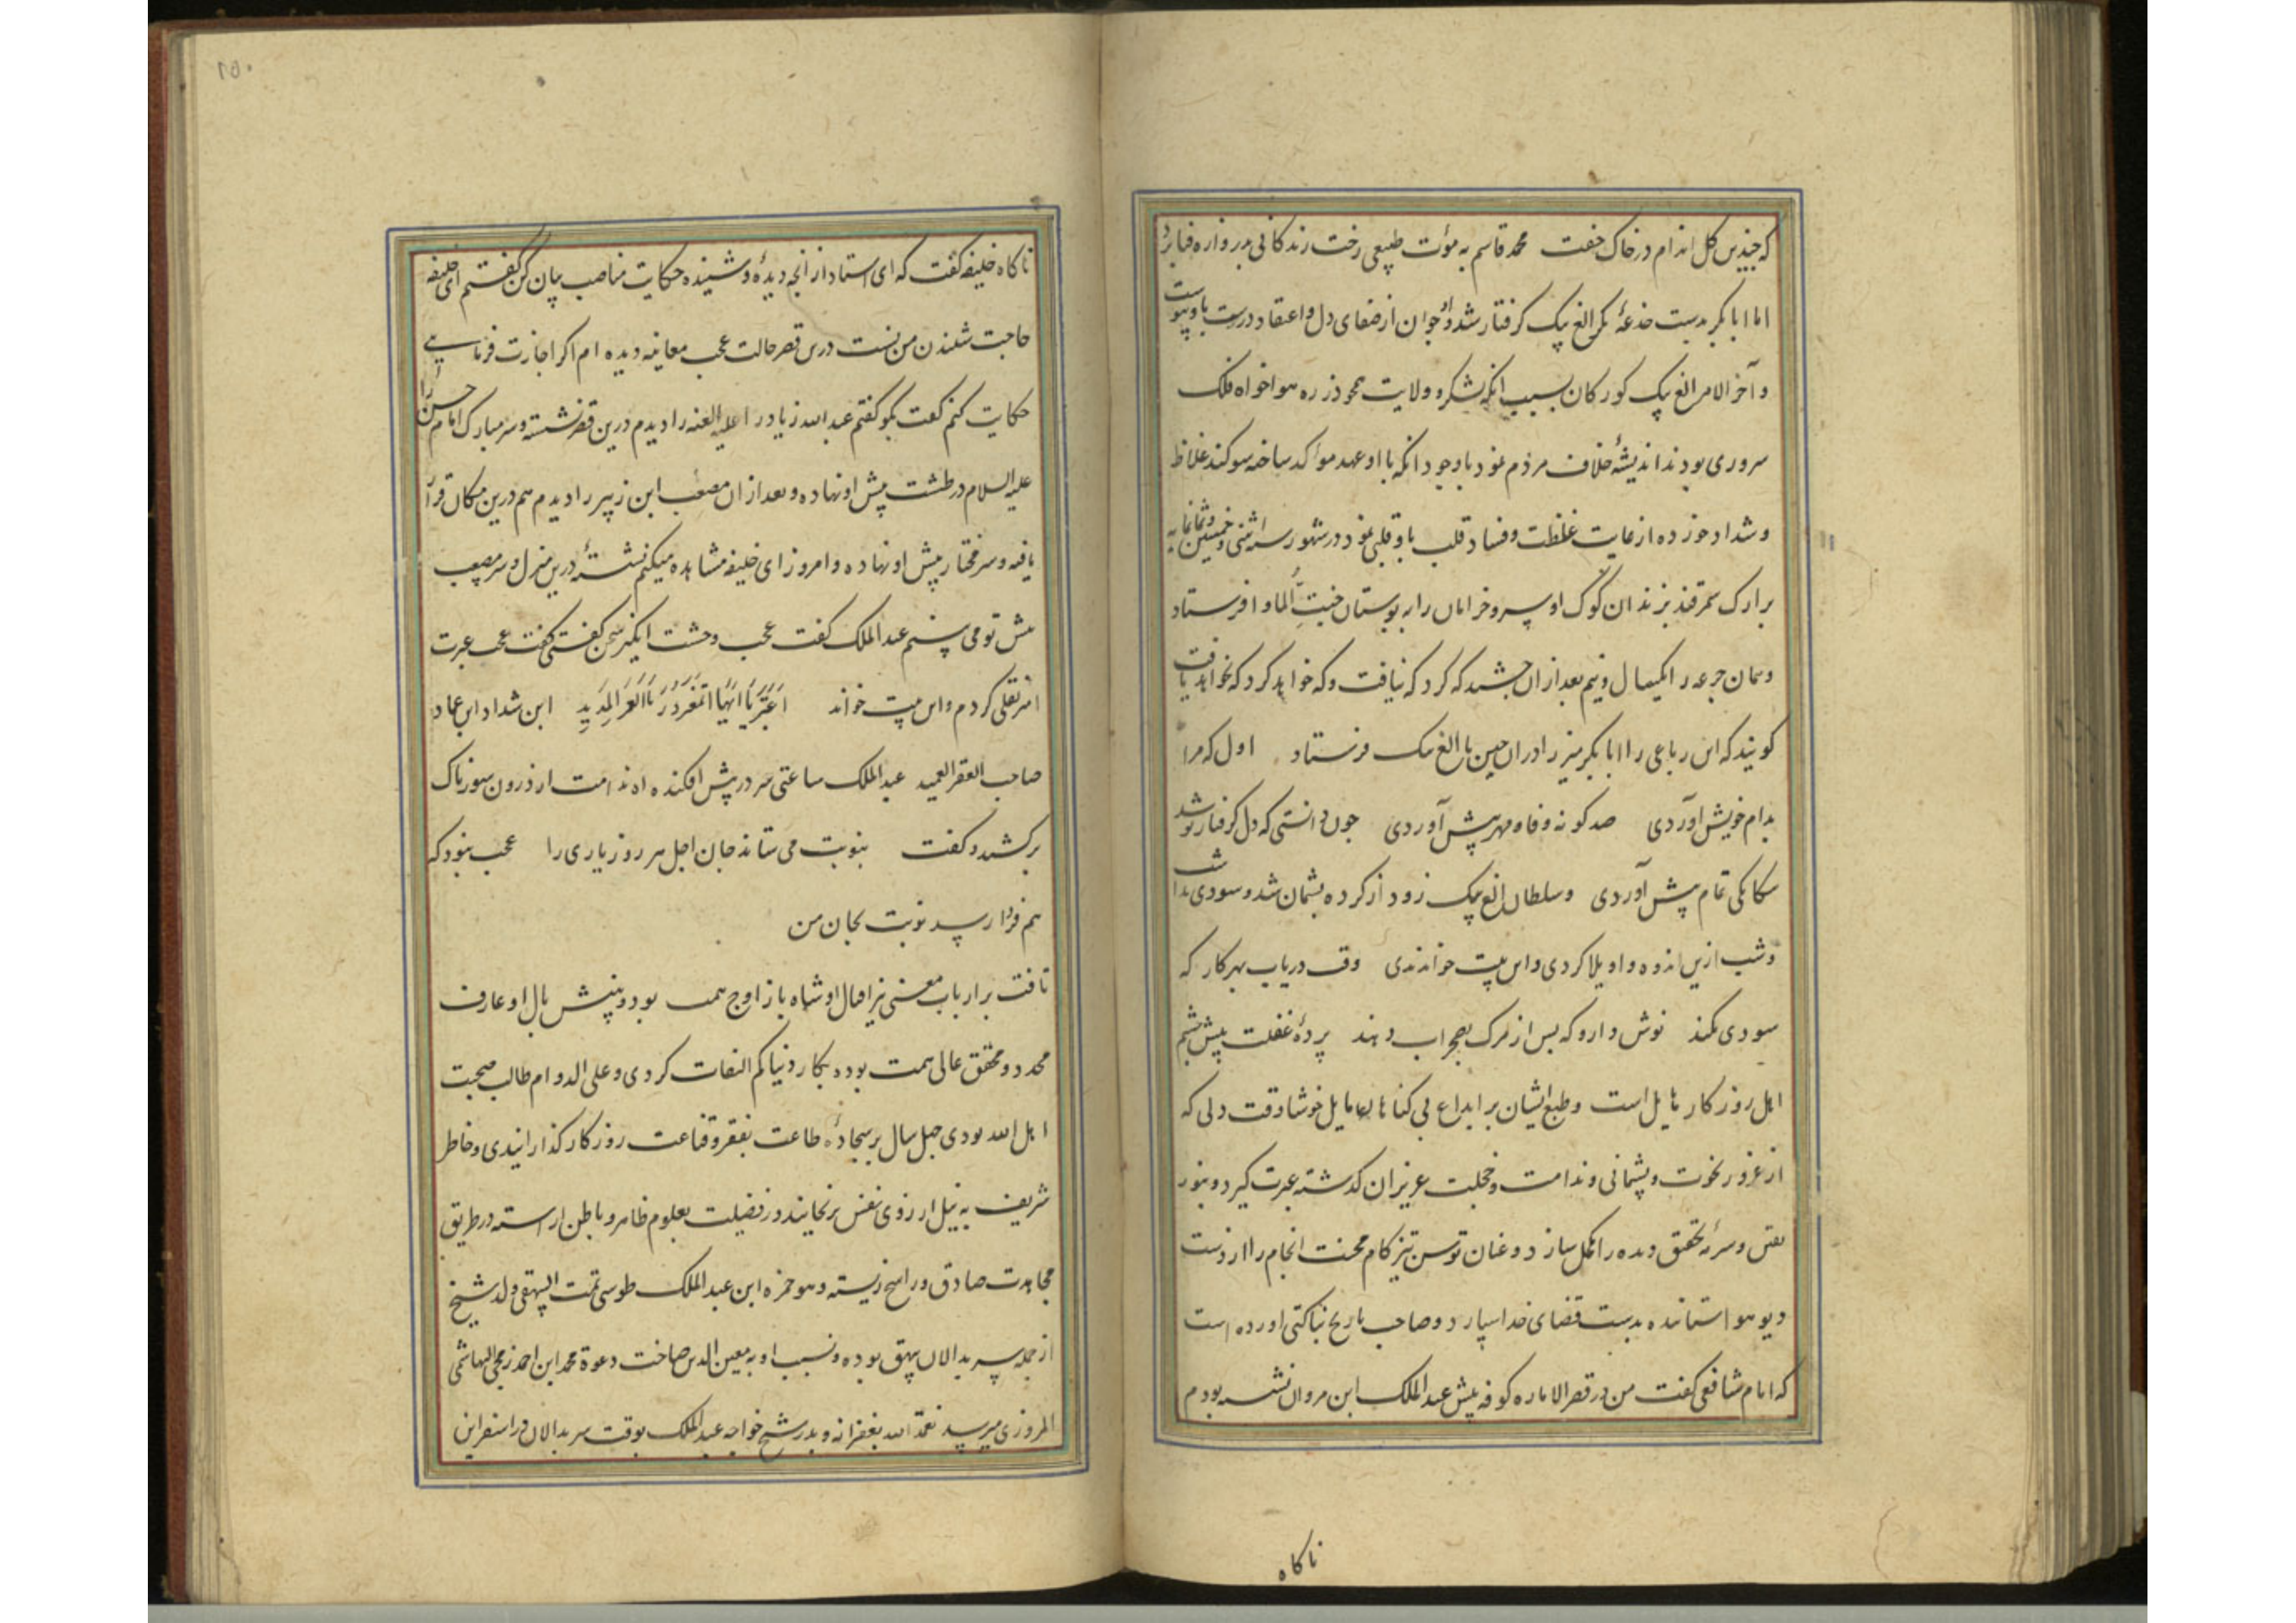 که چندین گل اندام در خاک خفت محمد قاسم به موت طبیعی رخت زندگانی بدروازه فنا برد
اما ابا بکر بدست خدعهٔ الغ بیک گرفتار شد و جوان از صفای دل و اعتقاد درست باو پیوست
و آخر الامر الغ بیک کورکان بسبب آنکه لشکر و ولایت هواخواه ملک
سروری بودند اندیشهٔ خلاف مردم نمود باوجود آنکه با او عهد موکد ساخته سوکند غلاظ
و شداد خورده از غایت غلظت و فساد قلب با و قلبی نمود در شهور سنه اثنی و خمسین و ثمانمایه
برارک سمرقند بزندان کوک او سرو خرامان را به بوستان جنت الماوا فرستاد
و همان جرعه را یکسال و نیم بعد از آن چشید که کرد که نیافت و که خواهد کرد که نخواهد یافت
کویند که این رباعی را ابا بکر میرزا در آن حین با الغ بیک فرستاد اول که مرا
بدام خویش آوردی صد کونه وفا و مهر پیش آوردی چون دانستی که دل گرفتار تو شد
بیکانکی تمام پیش آوردی و سلطان الغ بیک زود از کرده پشمان شد و سودی نداشت
و شب ازین اندوه واویلا کردی و این بیت خواندندی وقت دریاب بهر کار که
سودی نکند نوش دارو که پس از مرک بسهراب دهند پردهٔ غفلت پیش چشم
اهل روزکار حایل است و طبع ایشان بر ایذاع بی کناهان مایل خوشا وقت دلی که
از غرور نخوت و پشمانی و ندامت و خجلت عزیزان کذشته عبرت کیرد و بنور
یقین و سرمهٔ تحقیق دیده را مکحل سازد و عنان توسن تیز کام محنت انجام را از دست
دیو هوا ستانده بدست قضای خدا سپارد و صاحب تاریخ بناکتی آورده است
که امام شافعی کفت من در قصر الاماره کوفه پیش عبد الملک ابن مروان نشسته بودم
ناکاه
۲۵۰
ناکاه خلیفه کفت که ای استاد از آنچه دیدهٔ و شنیده حکایت مناصب بیان کن کفتم ای خلیفه
حاجت شنیدن من نیست درین قصر حالت عجب معاینه دیده ام اکر اجازت فرمایی
حکایت کنم کفت بکو کفتم عبد الله زیاد را علیه العنه را دیدم درین قصر نشسته و سر مبارک امام حسین را
علیه السلام در طشت پیش او نهاده و بعد از آن مصعب ابن زبیر را دیدم هم درین مکان قرار
یافته و سر مختار پیش او نهاده و امروز ای خلیفه مشاهده میکنم نشستهٔ درین منزل و سر مصعب
پیش تو می بینم عبد الملک کفت عجب وحشت انکیز سخن کفتی کفت عجب عبرت
نقلی کردم و این بیت خواند اعتبر یا ایها المغرور بالعمر المدید ابن شداد ابن عماد
صاحب القصر العمید عبد الملک ساعتی سر در پیش افکنده آه ندامت از درون سوزناک
برکشید و کفت بنوبت می ستاند جان اجل هر روز یاری را عجب نبود که
هم فردا رسد نوبت بجان من
تافت بر ارباب معنی نیر اقبال او شاه باز اوج همت بود و بینش بال او عارف
محدد و محقق عالی همت بوده بکار دنیا کم التفات کردی و علی الدوام طالب صحبت
اهل الله بودی چهل سال بر سجادهٔ طاعت بفقر و قناعت روزکار کذرانیدی و خاطر
شریف به نیل آرزوی نفس نرنجانید و در فضیلت بعلوم ظاهر و باطن آراسته در طریق
مجاهدت صادق و راسخ زیسته و هو حمزه ابن عبد الملک طوسی ثمت البیهقی ولد شیخ
از جمله سربدالان بیهق بوده و نسب او به معین الدین صاحب دعوة محمد ابن احمد زمجی الهاشمی
المروزی میرسد تغمد الله بغفرانه و پدر شیخ خواجه عبد الملک بوقت سربدالان در اسفراین